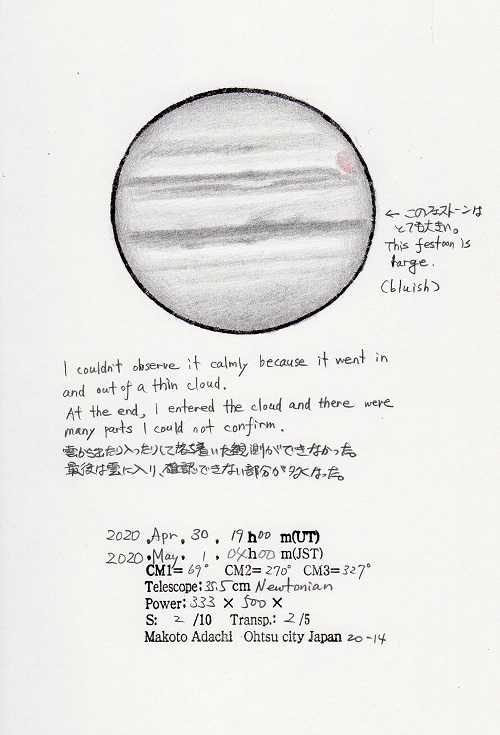 ← このフェストーンは
とても大きい。
This festoon is
large.
(bluish)
I couldn't observe it calmly because it went in
and out of a thin cloud.
At the end, I entered the cloud and there were
many parts I could not confirm.
雲から出たり入ったりして落ち着いた観測ができなかった。
最後は雲に入り、確認できない部分が多くなった。
2020.Apr. 30. 19h00 m(UT)
2020.May. 1. 04h00 m(JST)
CM1=69° CM2=270° CM3=327°
Telescope:35.5cm Newtonian
Power:333 × 500 ×
S: 2 /10 Transp.: 2 /5
Makoto Adachi Ohtsu city Japan 20-14